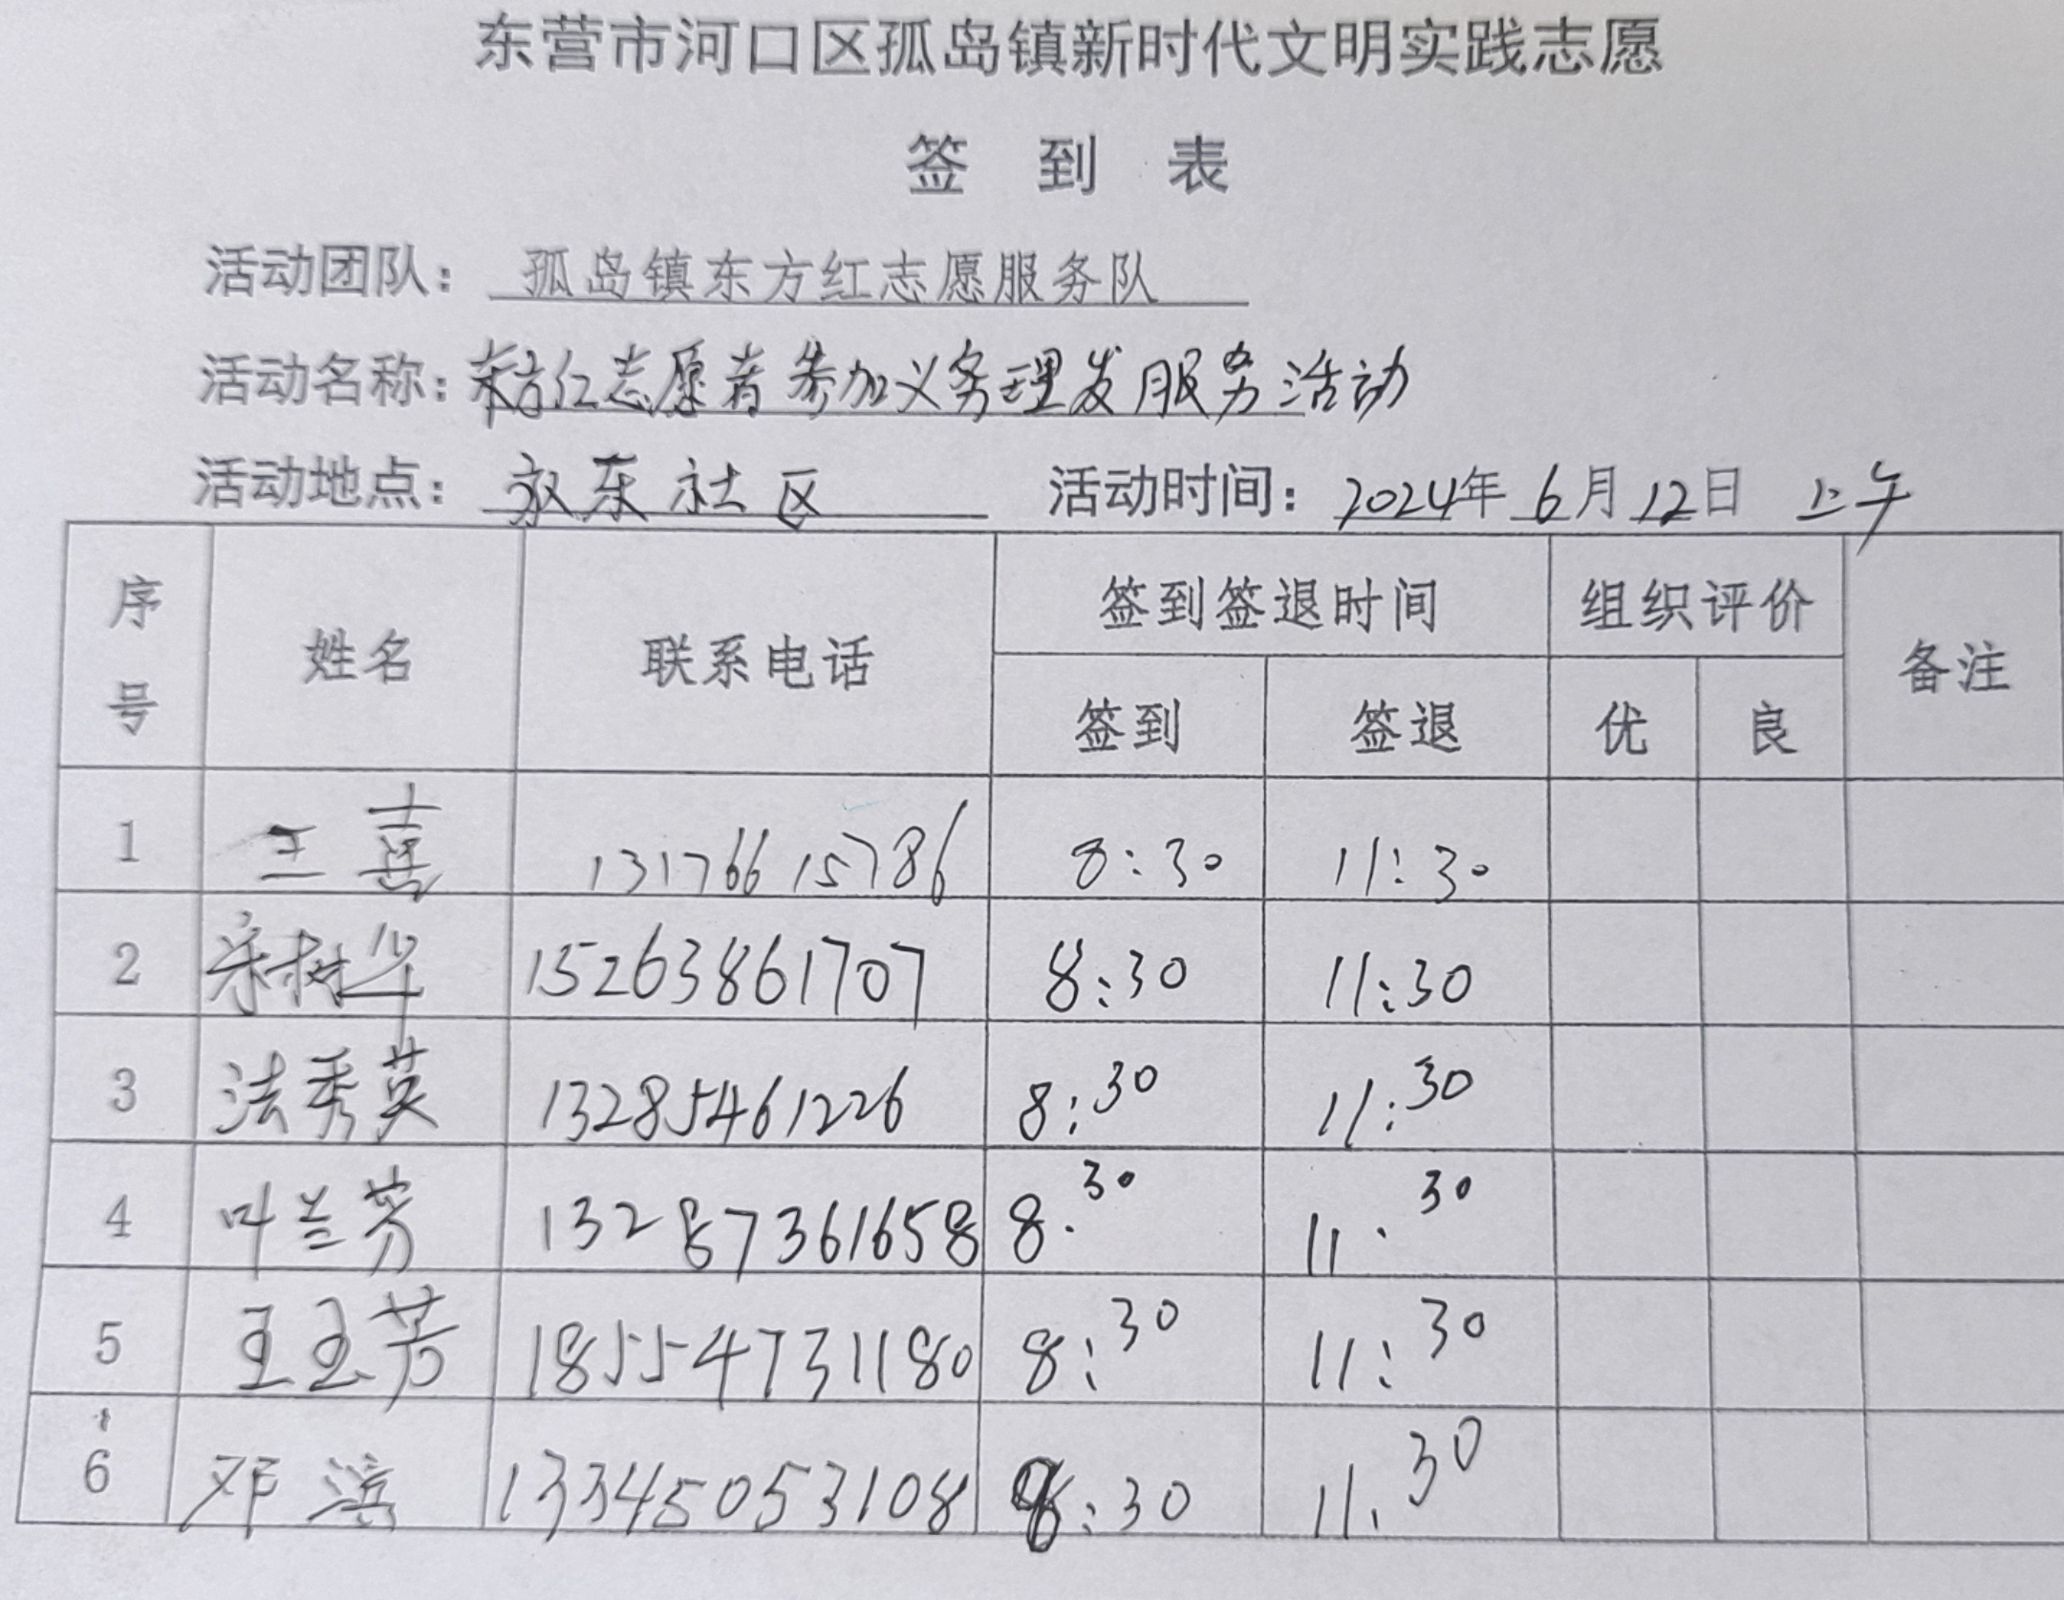 东营市河口区孤岛镇新时代文明实践志愿
签 到 表
活动团队： 孤岛镇东方红志愿服务队
活动名称：东方红志愿者参加义务理发服务活动
活动地点： 振东社区 活动时间：2024年 6月12日 上午
序号 姓名 联系电话 签到签退时间 组织评价 备注
签到 签退 优 良
1 王喜 13176615786 8:30 11:30
2 宋树华 15263861707 8:30 11:30
3 法秀英 13285461226 8:30 11:30
4 叶兰芳 13287361658 8:30 11:30
5 王玉芳 18554731180 8:30 11:30
6 邓滨 13345053108 8:30 11:30